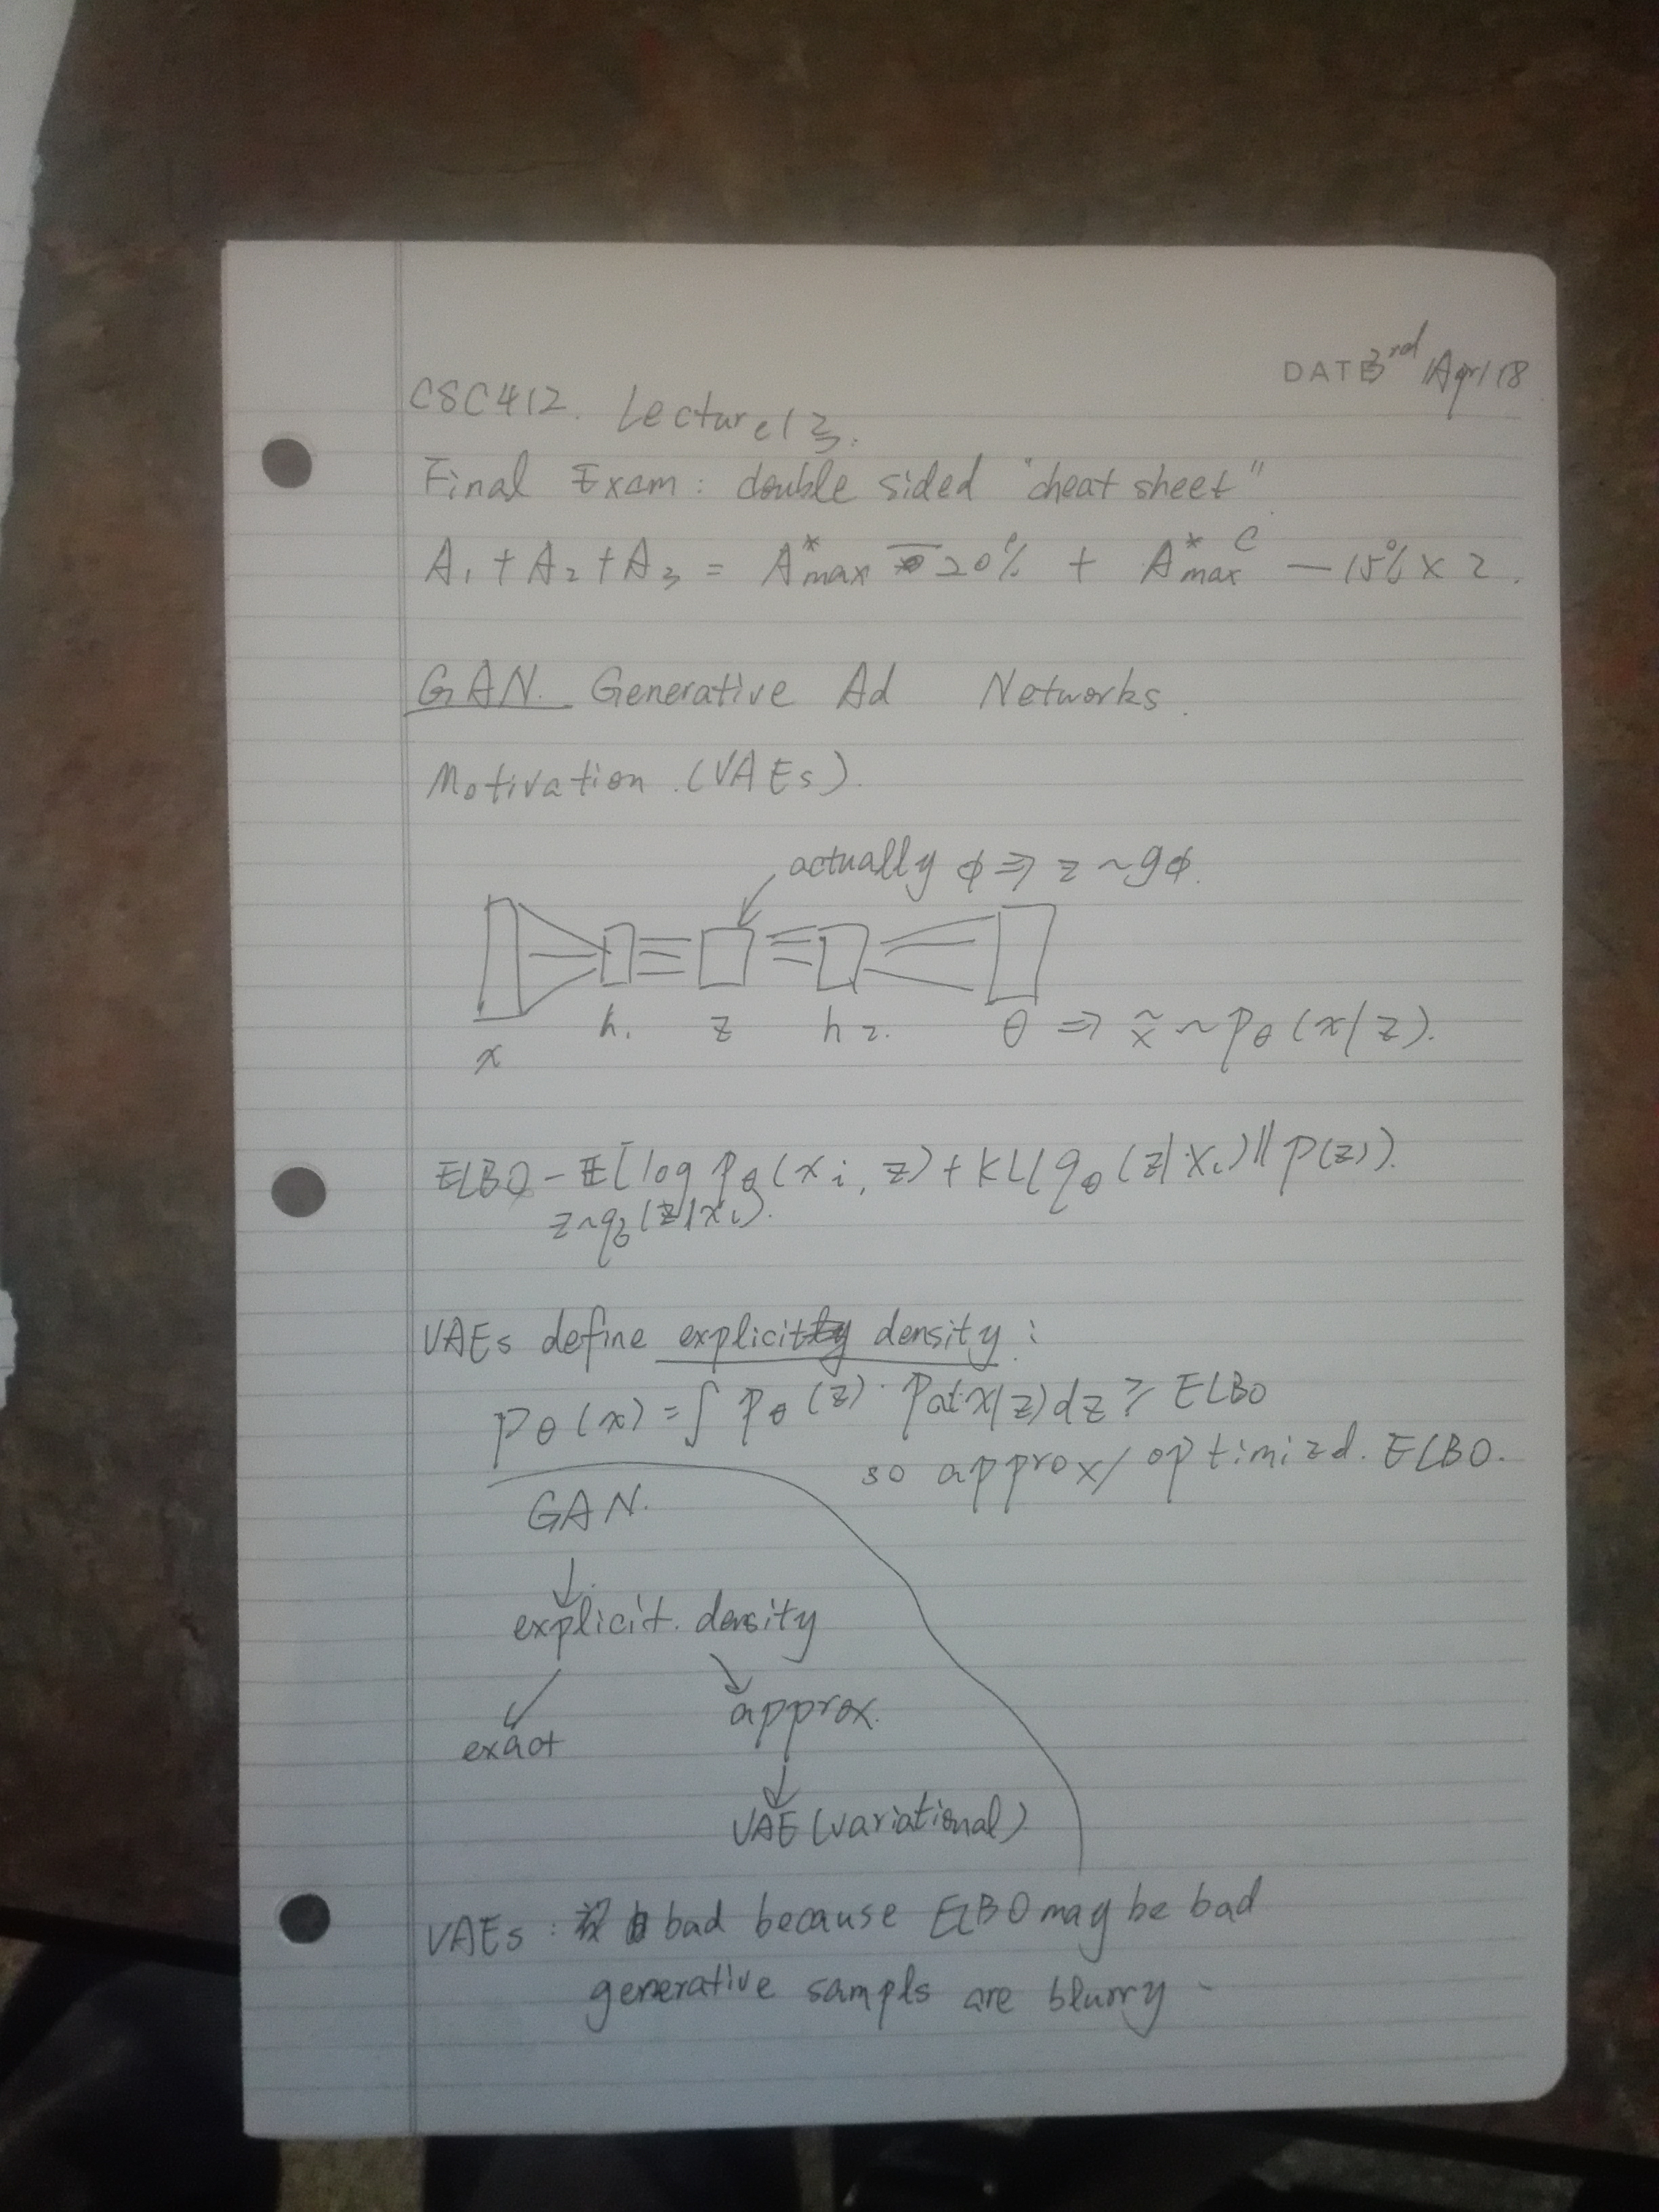 DATE 3rd Apr 18
CSC412. Lecture 13.
Final Exam: double sided "cheat sheet"
A₁ + A₂ + A₃ = A*max — 20% + A*max^C — 15% × 2.
GAN. Generative Ad Networks.
Motivation. (VAEs).
actually ϕ ⇒ z ~ qϕ.
h₁ z h₂. θ ⇒ x̃ ~ pθ(x|z).
x
ELBO - E[log pθ(xi, z) + KL(qθ(z|xi) || p(z)).
z~qθ(z|xi).
VAEs define explicit density:
pθ(x) = ∫ pθ(z) · pθ(x|z)dz ≥ ELBO
so approx/optimizd. ELBO.
GAN.
explicit. density
exact approx.
VAE (variational)
VAEs: bad because ELBO may be bad
generative sampls are blurry -